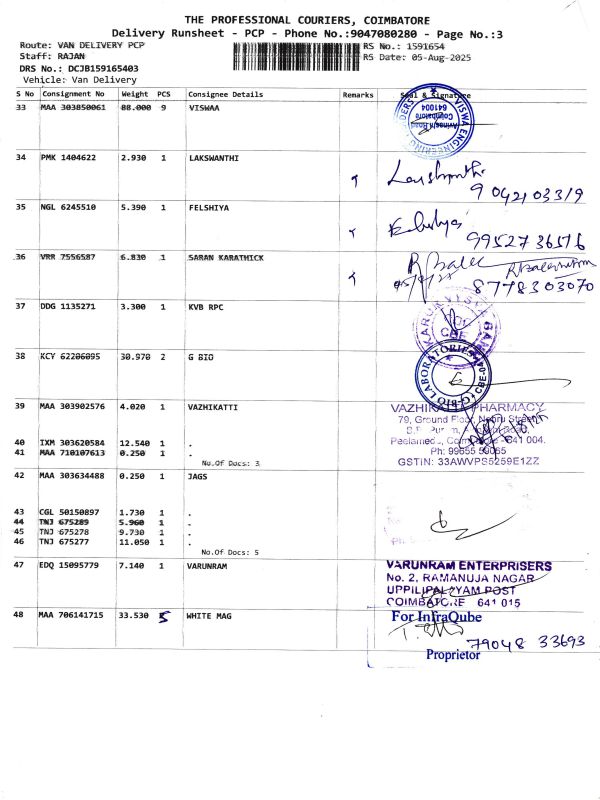 THE PROFESSIONAL COURIERS, COIMBATORE
Delivery Runsheet - PCP - Phone No.:9047080280 - Page No.:3
Route: VAN DELIVERY PCP
RS No.: 1591654
Staff: RAJAN
RS Date: 05-Aug-2025
DRS No.: DCJB159165403
Vehicle: Van Delivery
S No Consignment No Weight PCS Consignee Details Remarks Seal & Signature
33 MAA 303850061 88.000 9 VISWAA
VISWA ENGINEERING
Avinashi Road
Coimbatore
641004
34 PMK 1404622 2.930 1 LAKSWANTHI
9042103319
35 NGL 6245510 5.390 1 FELSHIYA
9952736516
36 VRR 7556587 6.830 1 SARAN KARATHICK
8778303070
37 DDG 1135271 3.300 1 KVB RPC
CBE
38 KCY 62206095 30.970 2 G BIO
G-BIO LABORATORIES
39 MAA 303902576 4.020 1 VAZHIKATTI
VAZHIKATTI PHARMACY
79, Ground Floor, Nehru Street
Peelamedu, Coimbatore -641 004.
Ph: 99655 59065
GSTIN: 33AWVPS5259E1ZZ
40 IXM 303620584 12.540 1 .
41 MAA 710107613 0.250 1 .
No.Of Docs: 3
42 MAA 303634488 0.250 1 JAGS
43 CGL 50150897 1.730 1 .
44 TNJ 675289 5.960 1 .
45 TNJ 675278 9.730 1 .
46 TNJ 675277 11.050 1 .
No.Of Docs: 5
47 EDQ 15095779 7.140 1 VARUNRAM
VARUNRAM ENTERPRISERS
No. 2, RAMANUJA NAGAR
UPPILIPALAYAM POST
COIMBATORE 641 015
48 MAA 706141715 33.530 5 WHITE MAG
For InfraQube
79048 33693
Proprietor